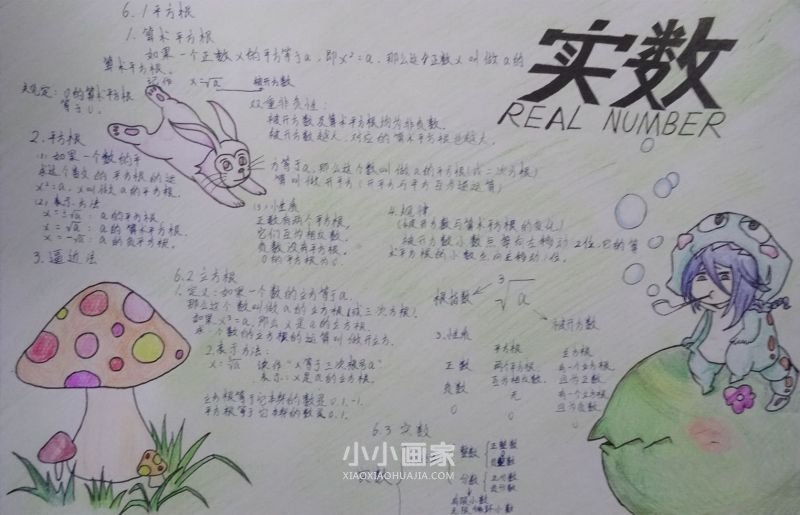 6.1平方根
1.算术平方根
如果一个正数x的平方等于a，即x²=a，那么这个正数x叫做a的
算术平方根。
记作 x=√a 被开方数
规定：0的算术平方根
等于0。
双重非负性：
被开方数及算术平方根均为非负数。
被开方数越大，对应的算术平方根也越大。
2.平方根
(1)如果一个数的平方等于a，那么这个数叫做a的平方根(或二次方根)
求这个数的平方根的运算叫做开平方(开平方与平方互为逆运算)
x²=a，x叫做a的平方根。
(2)表示方法
x=±√a：a的平方根
x=√a：a的算术平方根
x=-√a：a的负平方根
3.逼近法
(3)性质
正数有两个平方根，
它们互为相反数。
负数没有平方根。
0的平方根为0。
4.规律
(被开方数与算术平方根的变化)
被开方数小数点每向左移动2位，它的算
术平方根的小数点向左移动1位。
实数
REAL NUMBER
6.2立方根
1.定义：如果一个数的立方等于a，
那么这个数叫做a的立方根(或三次方根)
如果x³=a，那么x是a的立方根。
求一个数的立方根的运算叫做开立方。
2.表示方法：
x=³√a 读作"x等于三次根号a"
表示：x是a的立方根。
立方根等于它本身的数是0.1.-1.
平方根等于它本身的数是0.
根指数 ³√a
被开方数
3.性质
平方根 立方根
正数 两个平方根， 有一个立方根
互为相反数。 且为正数。
负数 无 有一个立方根
且为负数。
0 0 0
6.3实数
整数 正整数
0
负整数
分数 正分数
负分数
有限小数
无限循环小数
小小画家
XIAOXIAOHUAJIA.COM